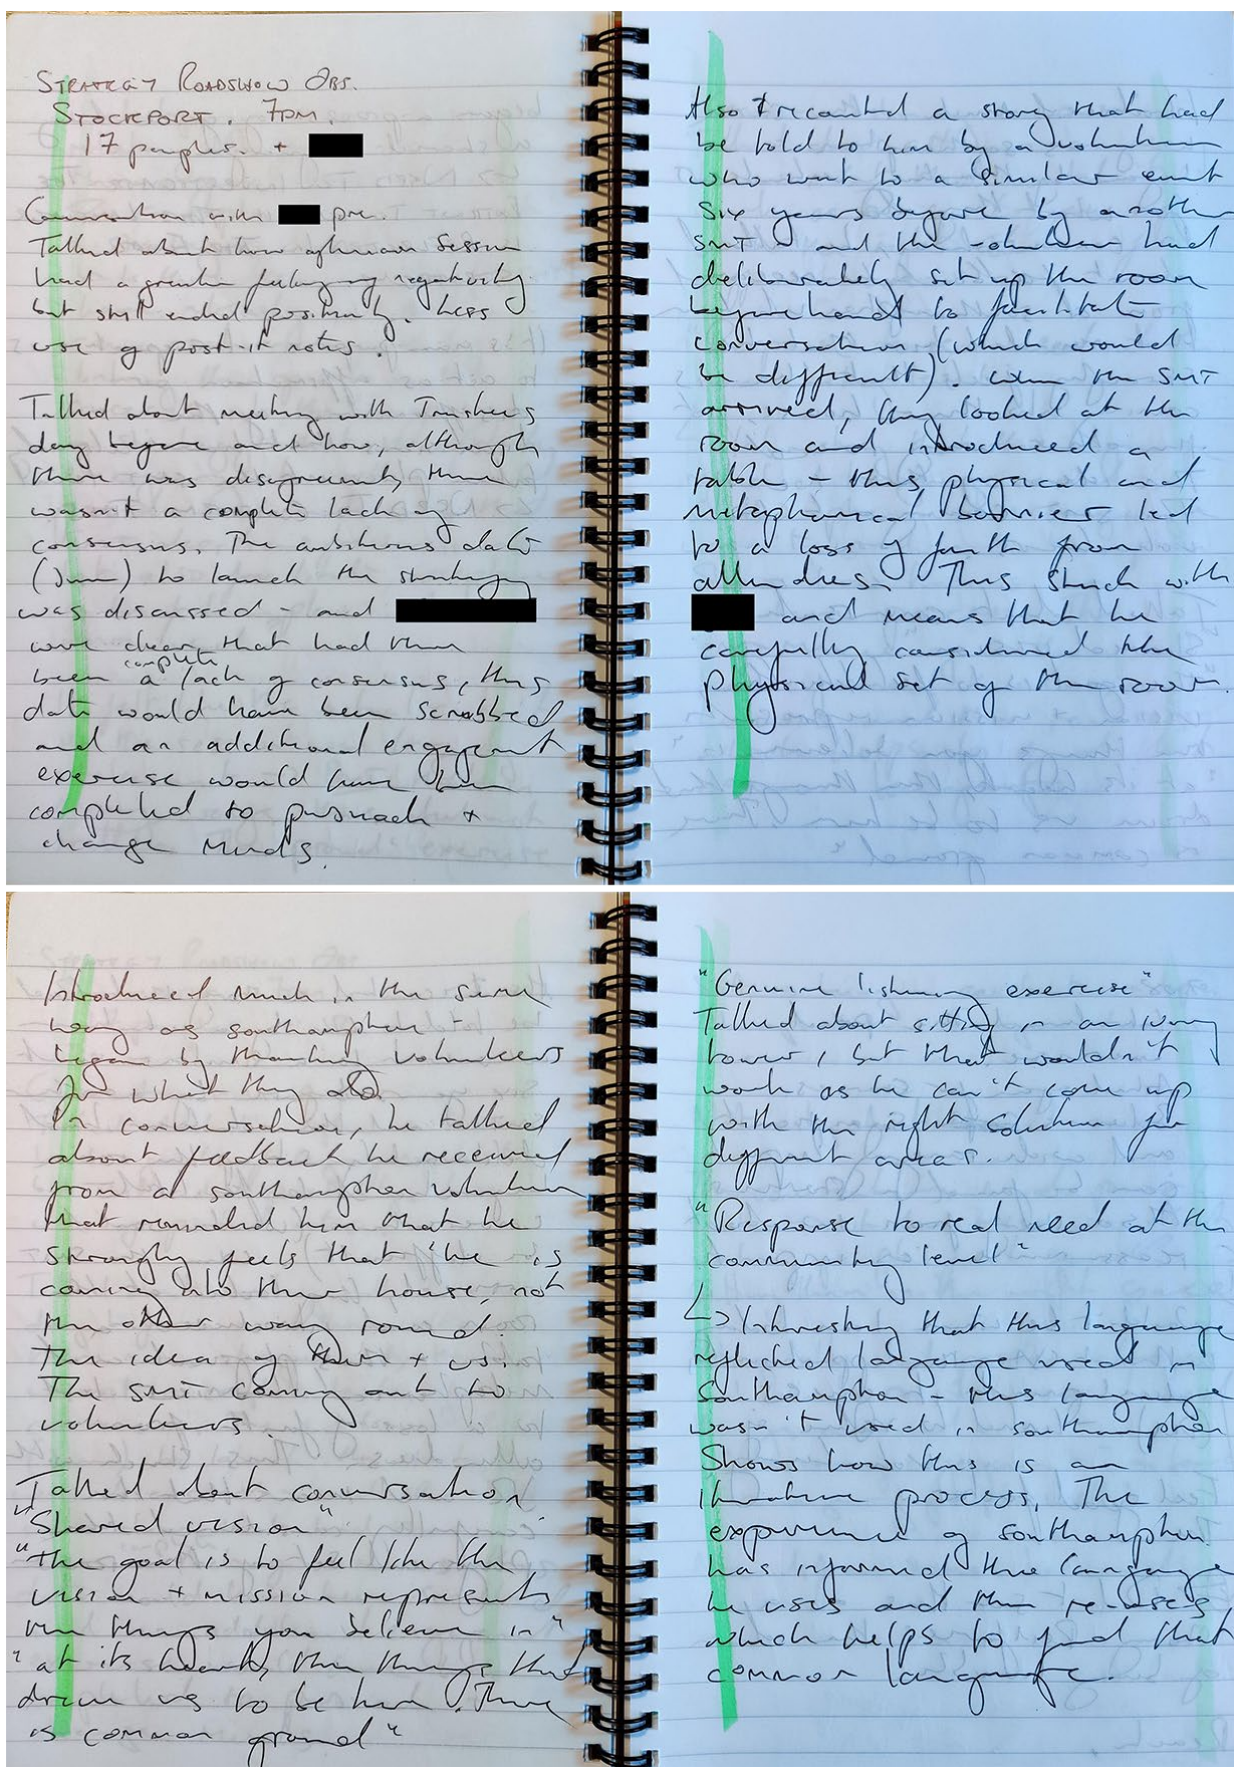 STRATEGY ROADSHOW OBS.
STOCKPORT. 7PM.
17 peoples. +
Conversation with pre.
Talked about how afternoon session
had a greater feeling of negativity
but still ended positively. Less
use of post-it notes.
Talked about meeting with Trustees
day before and how, although
there was disagreement, there
wasn't a complete lack of
consensus. The ambitious date
(June) to launch the strategy
was discussed - and
were clear that had there
been a complete lack of consensus, this
date would have been scrubbed
and an additional engagement
exercise would have been
completed to persuade +
change minds.
Also recounted a story that had
be told to him by a volunteer
who went to a similar event
six years before by another
SMT - and the volunteer had
deliberately set up the room
beforehand to facilitate
conversation (which would
be difficult). When the SMT
arrived, they looked at the
room and introduced a
table - this physical and
metaphorical barrier led
to a loss of faith from
attendees. This stuck with
and means that he
carefully considered the
physical set of the room.
Introduced much in the same
way as southampton -
began by thanking volunteers
for what they do.
In conversation, he talked
about feedback he received
from a southampton volunteer
that reminded him that he
strongly feels that 'he is
coming into their house, not
the other way round.
The idea of them + us.
The SMT coming out to
volunteers.
Talked about conversation
"Shared vision"
"the goal is to feel like the
vision + mission represents
the things you believe in"
"at its heart, the things that
drive us to be here. There
is common ground"
"Genuine listening exercise"
Talked about sitting in an ivory
tower, but that wouldn't
work as he can't come up
with the right solution for
different areas.
"Response to real need at the
community level"
↳ Interesting that this language
reflected language used in
Southampton - this language
wasn't used in southampton
Shows how this is an
iterative process. The
experience of southampton
has informed the language
he uses and then re-uses,
which helps to find that
common language.